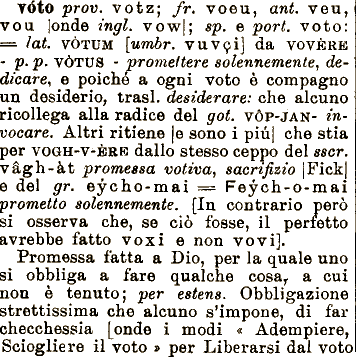 vóto prov. votz; fr. voeu, ant. veu,
vou [onde ingl. vow]; sp. e port. voto:
= lat. VÒTUM [umbr. vuvçi] da VOVÈRE
- p. p. VÒTUS - promettere solennemente, de-
dicare, e poiché a ogni voto è compagno
un desiderio, trasl. desiderare: che alcuno
ricollega alla radice del got. VÔP-JAN- in-
vocare. Altri ritiene [e sono i piú] che stia
per VOGH-V-ÈRE dallo stesso ceppo del sscr.
vâgh-àt promessa votiva, sacrifizio [Fick]
e del gr. eýcho-mai = Feých-o-mai
prometto solennemente. [In contrario però
si osserva che, se ciò fosse, il perfetto
avrebbe fatto voxi e non vovi].
Promessa fatta a Dio, per la quale uno
si obbliga a fare qualche cosa, a cui
non è tenuto; per estens. Obbligazione
strettissima che alcuno s'impone, di far
checchessia [onde i modi « Adempiere,
Sciogliere il voto » per Liberarsi dal voto